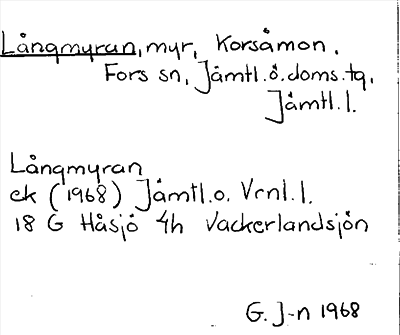 Långmyran, myr, Korsåmon.
Fors sn, Jämtl.ö.doms.tg,
Jämtl.l.
Långmyran
ek (1968) Jämtl.o. Vrnl.l.
18 G Håsjö 4h Vackerlandsjön
G. J-n 1968